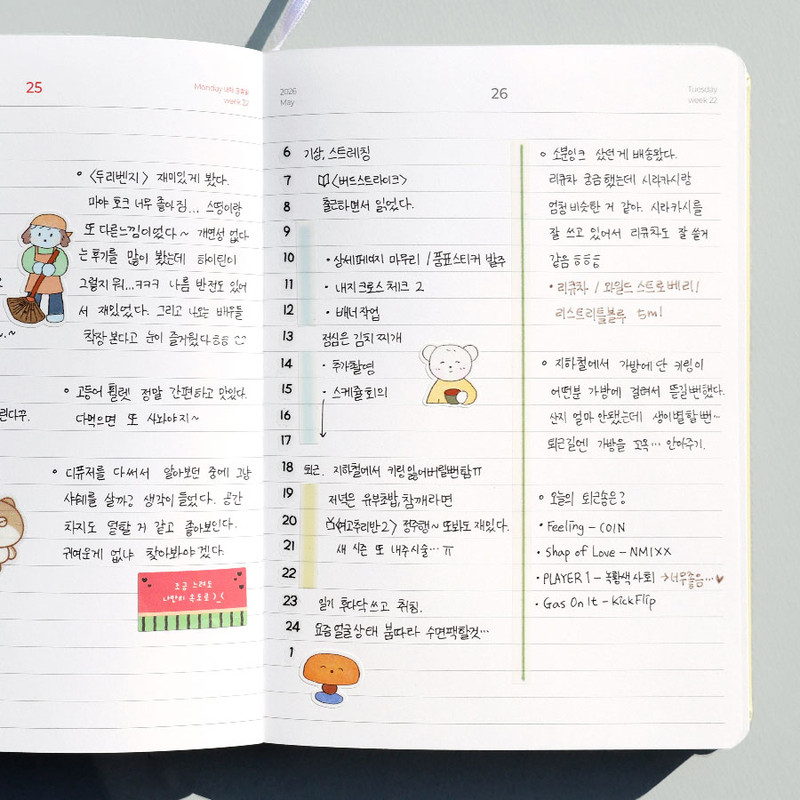 25
Monday 대체 공휴일
week 22
• <두리벤지> 재미있게 봤다.
마야 호크 너무 좋아짐... 스띵이랑
또 다른느낌이었다~ 개연성 없다
는 후기를 많이 봤는데 하이틴이
그렇지 뭐...ㅋㅋㅋ 나름 반전도 있어
서 재밌었다. 그리고 나오는 배우들
착장 보다고 눈이 즐거웠다ㅎㅎ
• 고등어 필렛 정말 간편하고 맛있다.
다먹으면 또 사놔야지~
린다꾸.
• 디퓨저를 다써서 알아보던 중에 그냥
샤쉐를 살까? 생각이 들었다. 공간
차지도 덜할 거 같고 좋아보인다.
귀여운게 없나 찾아봐야겠다.
조금 느려도
나만의 속도로 )_(
2026
May
26
Tuesday
week 22
6 기상, 스트레칭
7 <버드스트라이크>
8 출근하면서 읽었다.
9
10 • 상세페이지 마무리 / 품표스티커 발주
11 • 내지 크로스 체크 2
12 • 배너작업
13 점심은 김치찌개
14 • 추가촬영
15 • 스케쥴회의
16
17
18 퇴근. 지하철에서 키링 잃어버릴뻔함ㅠ
19 저녁은 유부초밥, 참깨라면
20 <여고추리반2> 정주행~ 또봐도 재밌다.
21 새 시즌 또 내주시술...ㅠ
22
23 일기 후다닥 쓰고 취침.
24 요즘 얼굴상태 붐따라 수면팩할것...
1
• 소분잉크 샀던 게 배송왔다.
리큐차 궁금했는데 시라카시랑
엄청 비슷한 거 같아. 시라카시를
잘 쓰고 있어서 리큐차도 잘 쓸게
같음 ㅎㅎㅎ
• 리큐차 / 와일드 스트로베리 /
리스트리틀블루 5ml
• 지하철에서 가방에 단 키링이
어떤분 가방에 걸려서 뜯길뻔했다.
산지 얼마 안됐는데 생이별할뻔~
퇴근길엔 가방을 꼬옥... 안아주기.
• 오늘의 퇴근송은?
• Feeling – COIN
• Shap of Love – NMIXX
• PLAYER 1 – 녹황색 사회 → 너무좋음...♥
• Gas On It – KickFlip